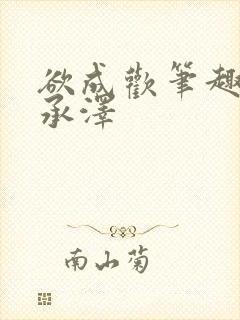 欲成歡筆趣
承澤
南山菊